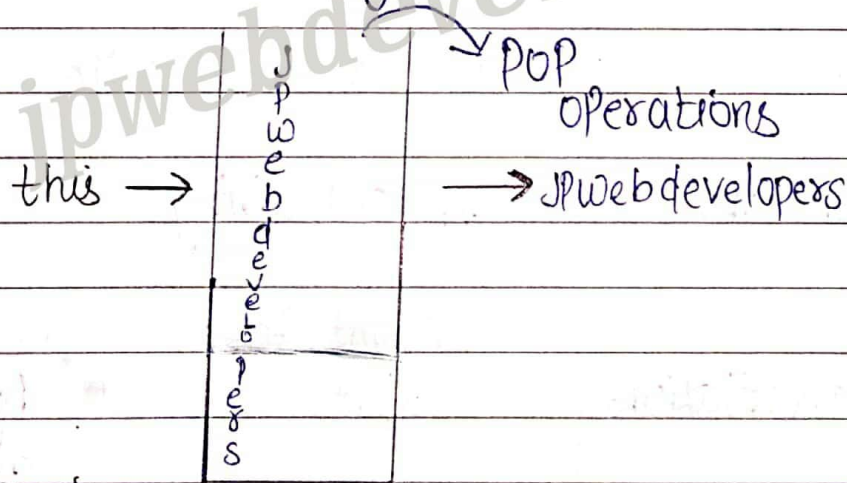 jpwebdeve
J
P
w
e
b
d
e
v
e
l
o
p
e
r
s
POP
operations
this → → JPwebdevelopers